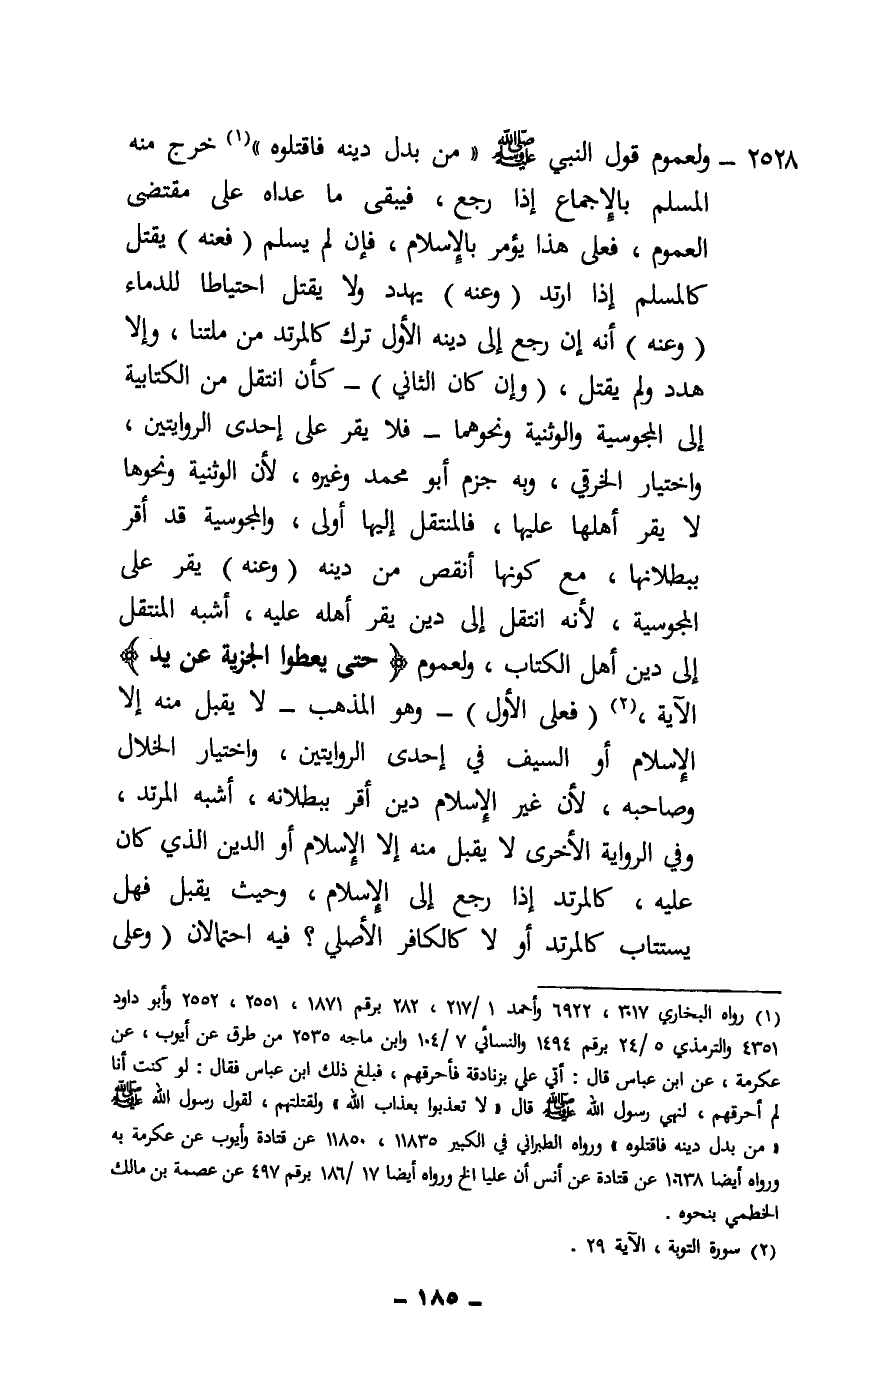 ٢٥٢٨ ـ ولعموم قول النبي ﷺ « من بدل دينه فاقتلوه »(١) خرج منه
المسلم بالإجماع إذا رجع ، فيبقى ما عداه على مقتضى
العموم ، فعلى هذا يؤمر بالإسلام ، فإن لم يسلم ( فعنه ) يقتل
كالمسلم إذا ارتد ( وعنه ) يهدد ولا يقتل احتياطا للدماء
( وعنه ) أنه إن رجع إلى دينه الأول ترك كالمرتد من ملتنا ، وإلا
هدد ولم يقتل ، ( وإن كان الثاني ) ـ كأن انتقل من الكتابية
إلى المجوسية والوثنية ونحوهما ـ فلا يقر على إحدى الروايتين ،
واختيار الخرقي ، وبه جزم أبو محمد وغيره ، لأن الوثنية ونحوها
لا يقر أهلها عليها ، فالمنتقل إليها أولى ، والمجوسية قد أقر
ببطلانها ، مع كونها أنقص من دينه ( وعنه ) يقر على
المجوسية ، لأنه انتقل إلى دين يقر أهله عليه ، أشبه المنتقل
إلى دين أهل الكتاب ، ولعموم ﴿ حتى يعطوا الجزية عن يد ﴾
الآية ،(٢) ( فعلى الأول ) ـ وهو المذهب ـ لا يقبل منه إلا
الإسلام أو السيف في إحدى الروايتين ، واختيار الخلال
وصاحبه ، لأن غير الإسلام دين أقر ببطلانه ، أشبه المرتد ،
وفي الرواية الأخرى لا يقبل منه إلا الإسلام أو الدين الذي كان
عليه ، كالمرتد إذا رجع إلى الإسلام ، وحيث يقبل فهل
يستتاب كالمرتد أو لا كالكافر الأصلي ؟ فيه احتمالان ( وعلى
(١) رواه البخاري ٣٠١٧ ، ٦٩٢٢ وأحمد ١ /٢١٧ ، ٢٨٢ برقم ١٨٧١ ، ٢٥٥١ ، ٢٥٥٢ وأبو داود
٤٣٥١ والترمذي ٥ /٢٤ برقم ١٤٩٤ والنسائي ٧ /١٠٤ وابن ماجه ٢٥٣٥ من طرق عن أيوب ، عن
عكرمة ، عن ابن عباس قال : أتي علي بزنادقة فأحرقهم ، فبلغ ذلك ابن عباس فقال : لو كنت أنا
لم أحرقهم ، لنهي رسول الله ﷺ قال « لا تعذبوا بعذاب الله » ولقتلتهم ، لقول رسول الله ﷺ
« من بدل دينه فاقتلوه » ورواه الطبراني في الكبير ١١٨٣٥ ، ١١٨٥٠ عن قتادة وأيوب عن عكرمة به
ورواه أيضا ١٠٦٣٨ عن قتادة عن أنس أن عليا الخ ورواه أيضا ١٧ /١٨٦ برقم ٤٩٧ عن عصمة بن مالك
الخطمي بنحوه .
(٢) سورة التوبة ، الآية ٢٩ .
ـ ١٨٥ ـ